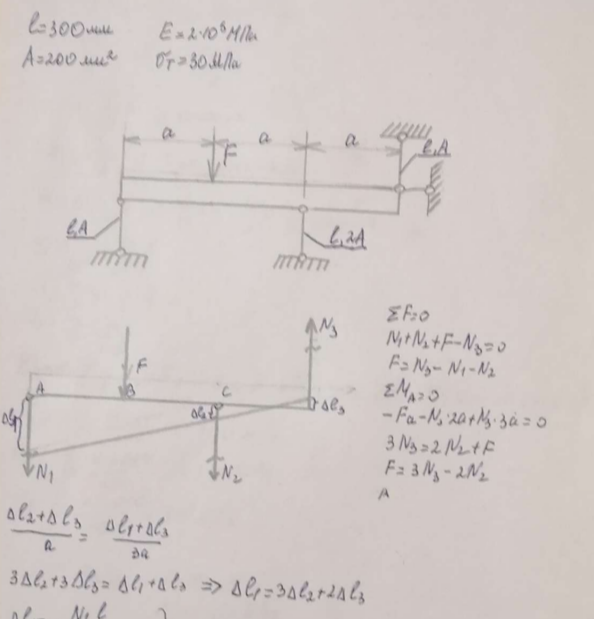 l=300мм E=2·10⁶МПа
A=200мм² σт=30МПа
a a a
F
l,A
l,A
l,2A
N₃
F
A B C
Δl₁ Δl₂ Δl₃
N₁ N₂
ΣF=0
N₁+N₂+F-N₃=0
F=N₃-N₁-N₂
ΣM_A=0
-Fa-N₂·2a+N₃·3a=0
3N₃=2N₂+F
F=3N₃-2N₂
A
(Δl₂+Δl₃)/a = (Δl₁+Δl₃)/3a
3Δl₂+3Δl₃=Δl₁+Δl₃ ⇒ Δl₁=3Δl₂+2Δl₃